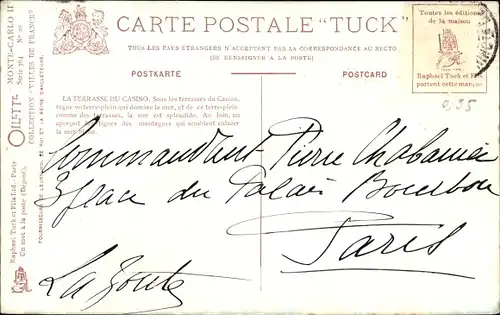 CARTE POSTALE "TUCK"
TOUS LES PAYS ETRANGERS N'ACCEPTENT PAS LA CORRESPONDANCE AU RECTO
(SE RENSEIGNER A LA POSTE)
POSTKARTE
POSTCARD
Toutes les éditions
de la maison
Raphael Tuck et Fils
portent cette marque
0,35
MONTE-CARLO II
OILETTE
COLLECTION "VILLES DE FRANCE"
Raphael Tuck et Fils Ltd. - Paris
Un mot à la poste (Déposé).
LA TERRASSE DU CASINO. Sous les terrasses du Casino,
règne un terre-plein qui domine la mer, et de ce terre-plein
comme des terrasses, la vue est splendide. Au loin, on
aperçoit les lignes des montagnes qui semblent enlacer
la mer bleue.
Commandant Pierre Chabanier
3 place du Palais Bourbon
Paris
La Zoute